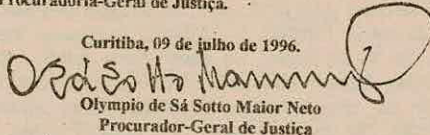 Procuradoria-Geral de Justiça.
Curitiba, 09 de julho de 1996.
Olympio de Sá Sotto Maior Neto
Procurador-Geral de Justiça